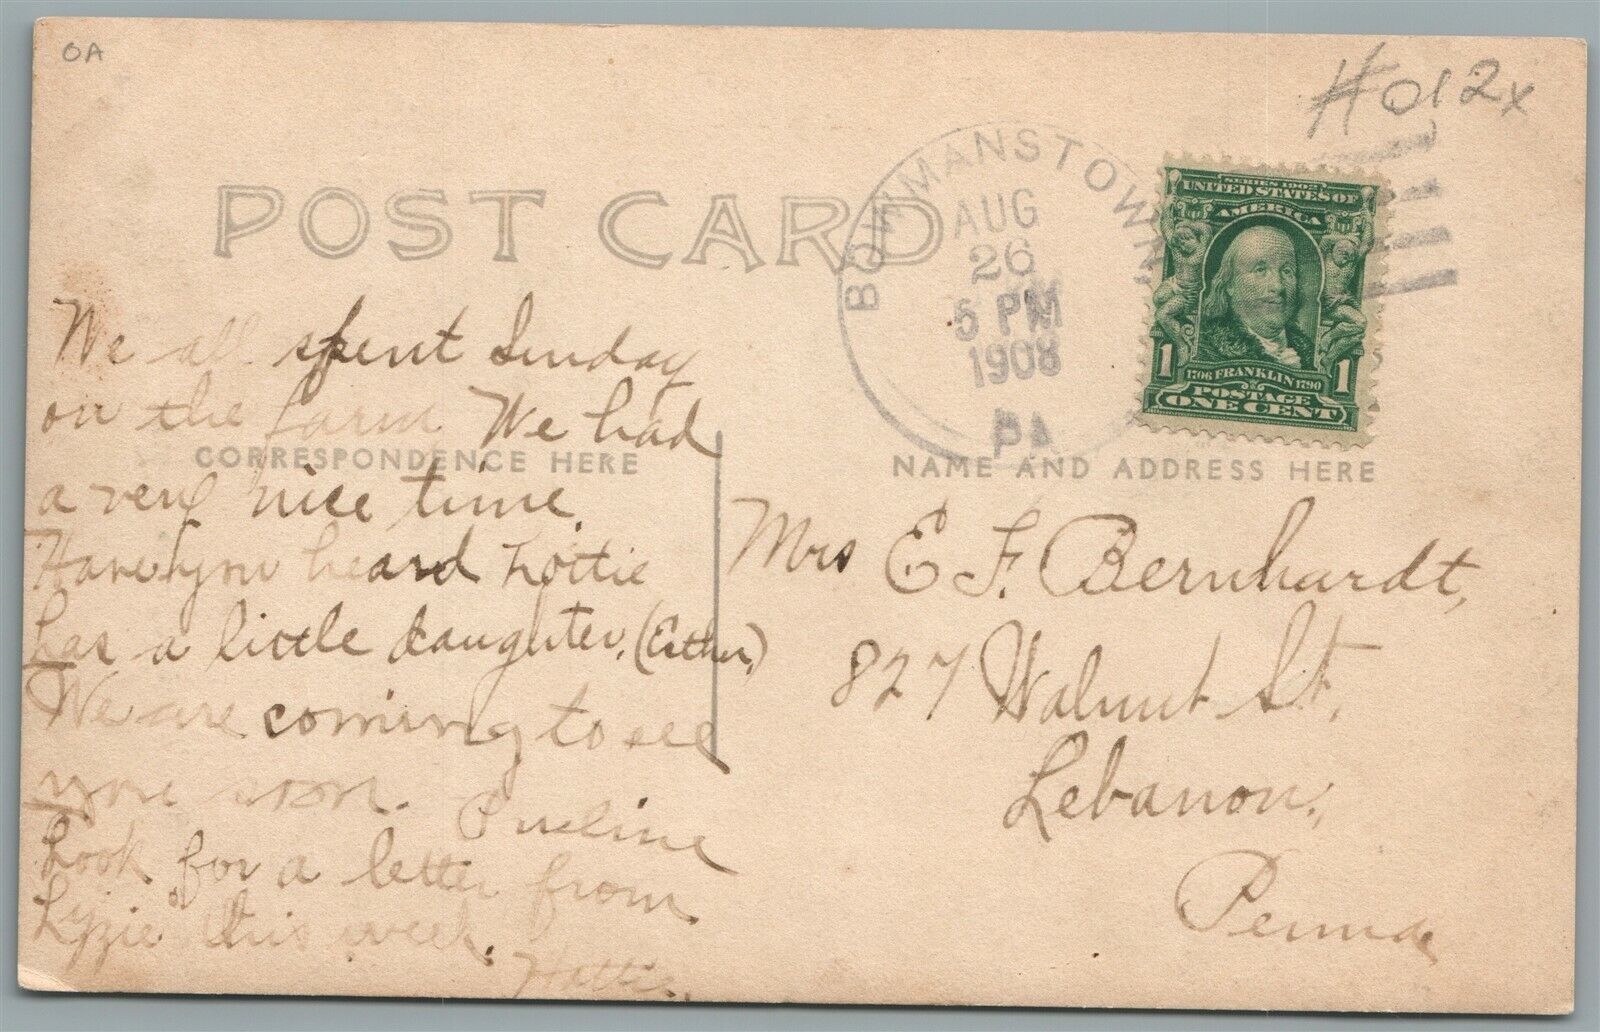 OA
#012x
POST CARD
BOWMANSTOWN
AUG
26
5 PM
1908
PA
SERIES 1902
UNITED STATES OF
AMERICA
1 1706 FRANKLIN 1790 1
POSTAGE
ONE CENT
We all spent Sunday
on the farm, We had
CORRESPONDENCE HERE
a very nice time.
Have you heard Lottie
has a little daughter, (Esther,)
We are coming to see
you soon.
Look for a letter from
Lizzie this week.
Hattie.
NAME AND ADDRESS HERE
Mrs E F. Bernhardt,
827 Walnut St,
Lebanon,
Penna